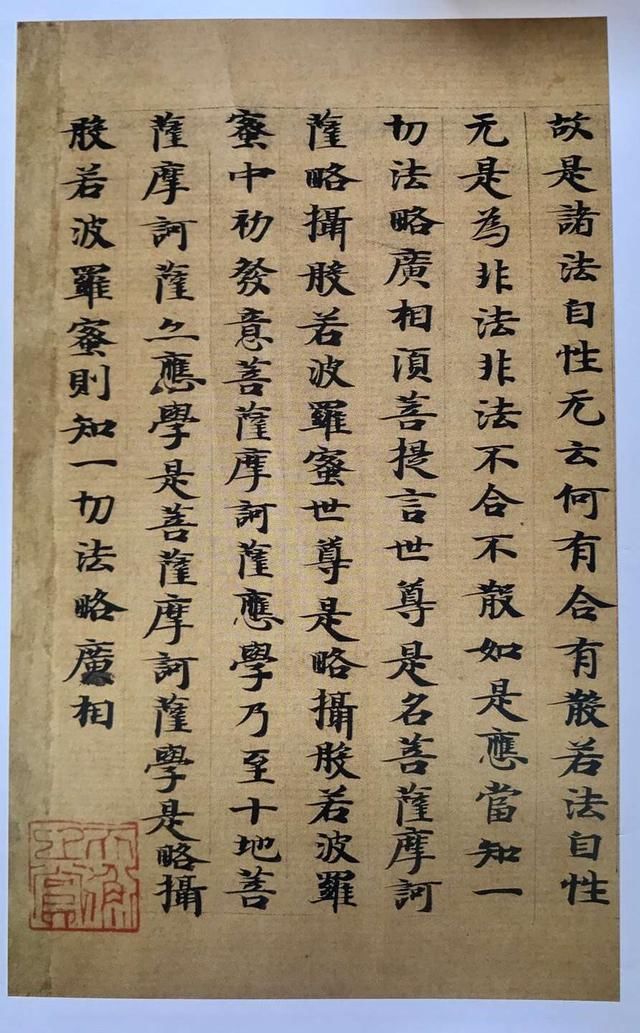 故是諸法自性无云何有合有散若法自性
无是為非法非法不合不散如是應當知一
切法略廣相湏菩提言世尊是名菩薩摩訶
薩略攝般若波羅蜜世尊是略攝般若波羅
蜜中初發意菩薩摩訶薩應學乃至十地菩
薩摩訶薩亦應學是菩薩摩訶薩學是略攝
般若波羅蜜則知一切法略廣相